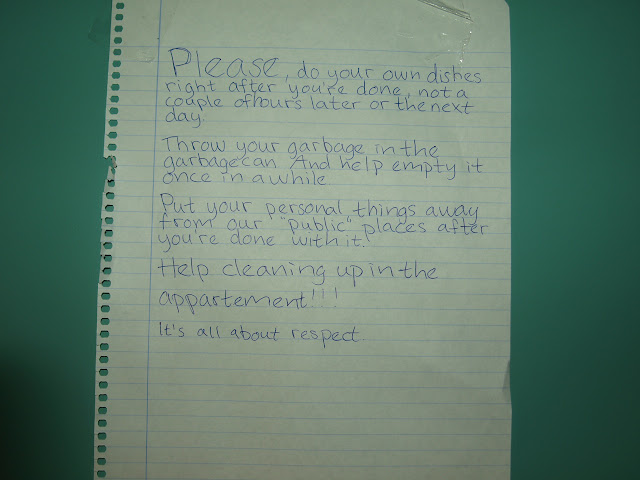 Please, do your own dishes
right after you're done, not a
couple of hours later or the next
day.
Throw your garbage in the
garbagecan. And help empty it
once in a while
Put your personal things away
from our "public" places after
you're done with it!
Help cleaning up in the
appartement!!!
It's all about respect.